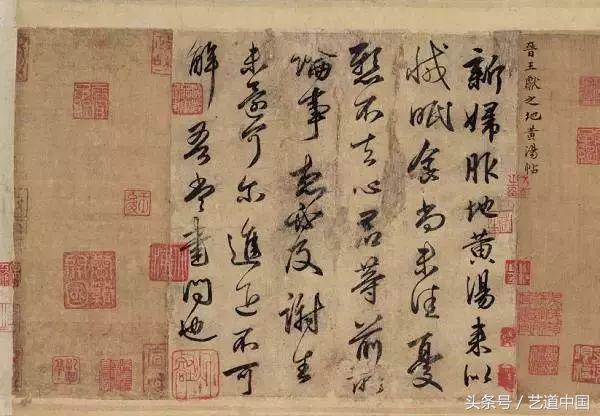 晉王獻之地黄湯帖
新婦服地黄湯來似
減眠食尚未佳憂
懸不去心君等前所
論事想必及謝生
未還可尔進退不可
解吾當書問也
头条号 / 艺道中国